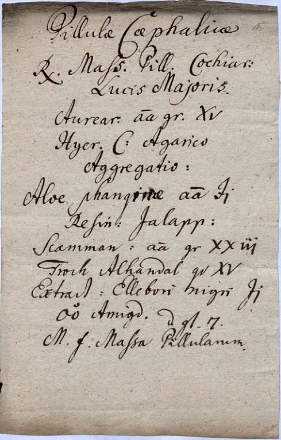 Pillulæ Cæphalicæ
℞. Mass. Pill. Cochiar:
Lucis Majoris.
Aurear: aa gr. XV
Hyer. C: Agarico
Aggregatio:
Aloe phanginæ aa ʒj
Resin: Jalapp:
Scamman: aa gr XXiij
Troch Alhandal gr XV
Extract: Ellebori nigri ʒj
Amigd. gt. 7.
M. f. Massa Pillularum.